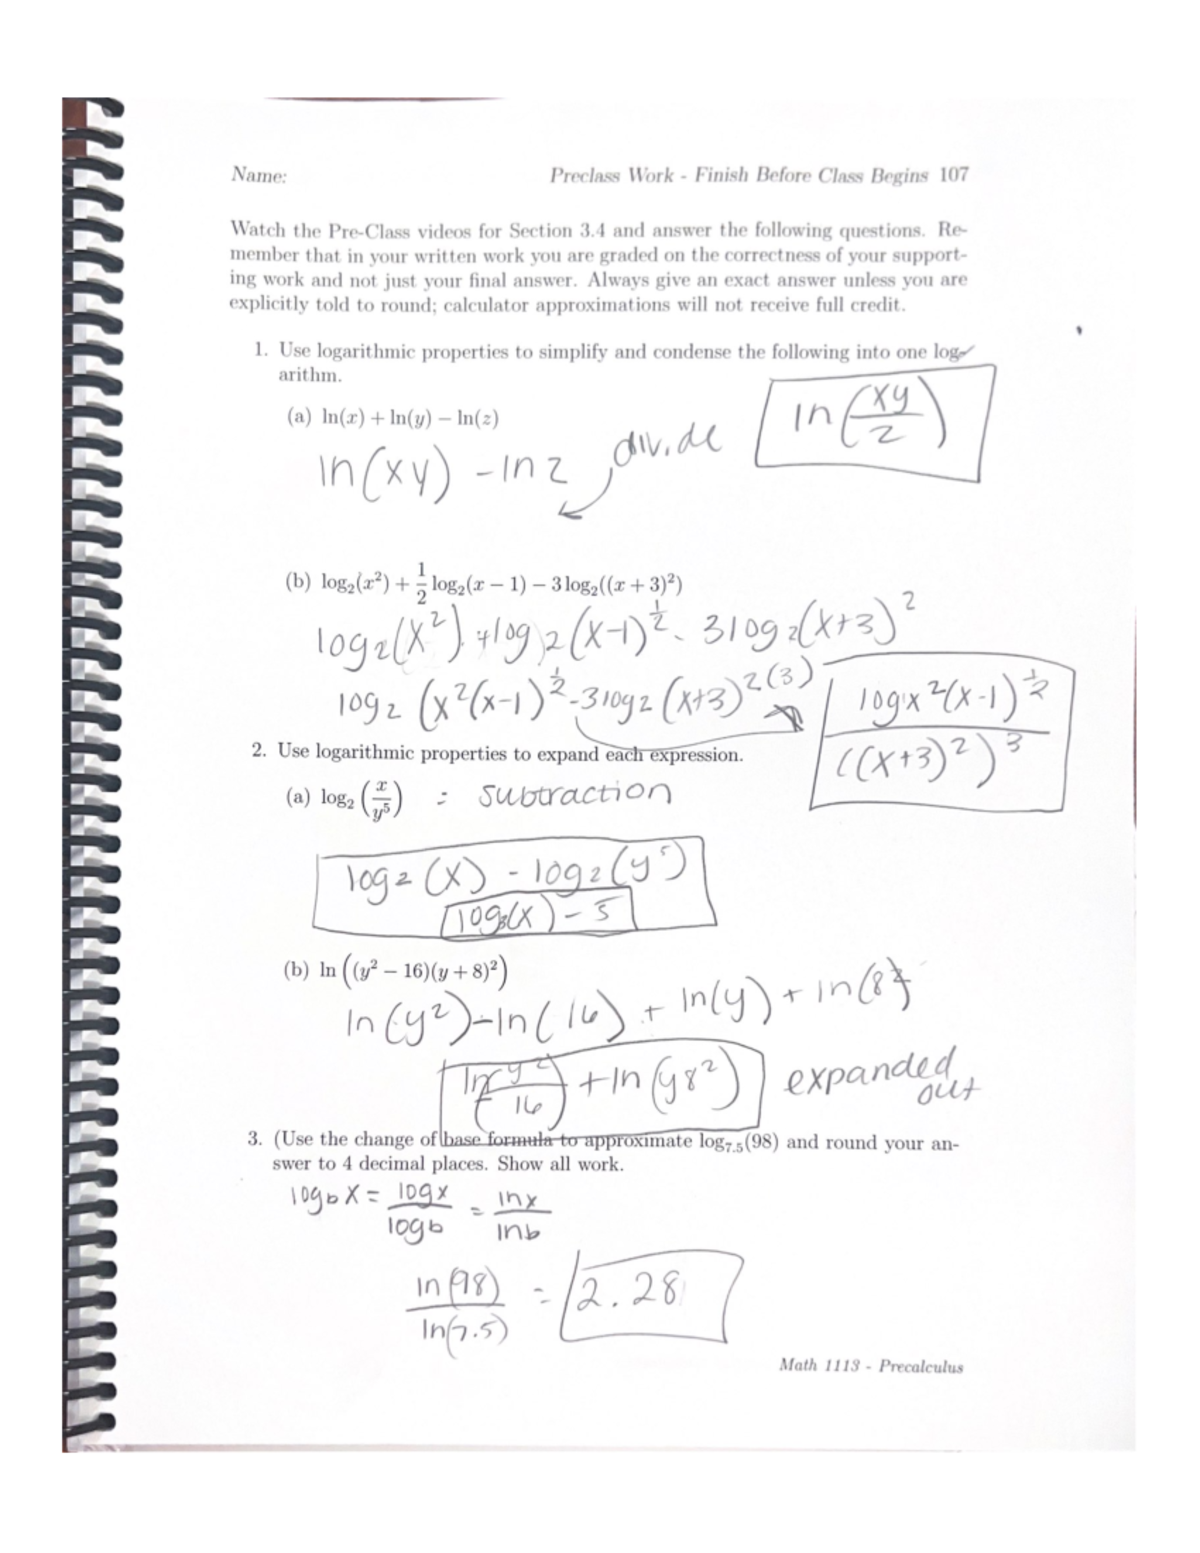 Name: Preclass Work - Finish Before Class Begins 107
Watch the Pre-Class videos for Section 3.4 and answer the following questions. Re-
member that in your written work you are graded on the correctness of your support-
ing work and not just your final answer. Always give an exact answer unless you are
explicitly told to round; calculator approximations will not receive full credit.
1. Use logarithmic properties to simplify and condense the following into one log-
arithm.
(a) ln(x) + ln(y) − ln(z)
ln(xy/z)
divide
ln(xy) - ln z
(b) log₂(x²) + 1/2 log₂(x − 1) − 3 log₂((x + 3)²)
log₂(x²) + log₂(x-1)^½ - 3log₂(x+3)²
log₂(x²(x-1)^½ - 3log₂(x+3)^2(3)
log x²(x-1)^½ / ((x+3)²)³
2. Use logarithmic properties to expand each expression.
(a) log₂(x/y⁵) = subtraction
log₂(x) - log₂(y⁵)
log₂(x) - 5
(b) ln((y² − 16)(y + 8)²)
ln(y²) - ln(16) + ln(y) + ln(8²)
ln(y²/16) + ln(y8²) expanded
out
3. (Use the change of base formula to approximate log₇.₅(98) and round your an-
swer to 4 decimal places. Show all work.
log_b x = log x / log b = ln x / ln b
ln(98) / ln(7.5) = 2.28
Math 1113 - Precalculus